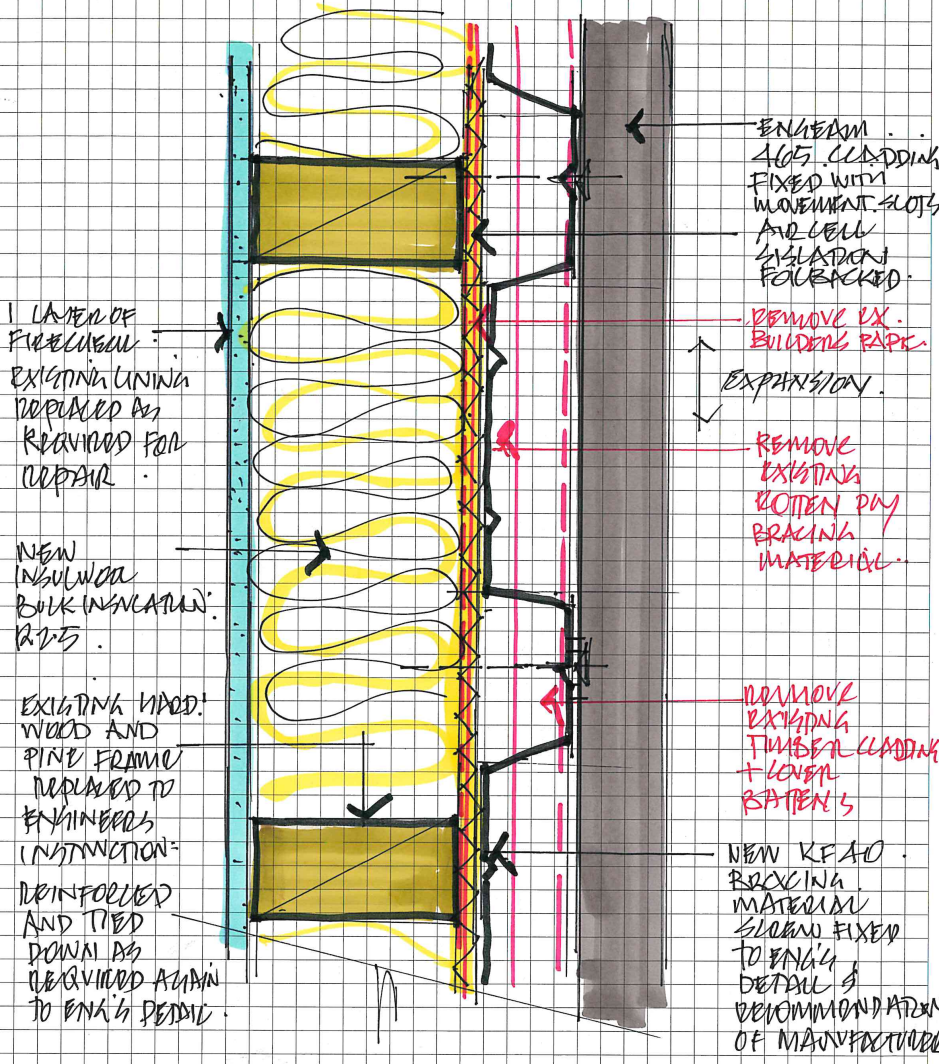 1 LAYER OF
FIRECHECK
EXISTING LINING
REPLACED AS
REQUIRED FOR
REPAIR.
NEW
INSULWOOL
BULK INSULATION.
R2.5.
EXISTING HARD.
WOOD AND
PINE FRAME
REPLACED TO
ENGINEERS
INSTRUCTION-
REINFORCED
AND TIED
DOWN AS
REQUIRED AGAIN
TO ENG'S DETAIL.
ENSEAM
465 CLADDING
FIXED WITH
MOVEMENT SLOTS
AIRCELL
SISLATION
FOILBACKED.
REMOVE EX.
BUILDERS PAPER.
EXPANSION.
REMOVE
EXISTING
ROTTEN PLY
BRACING
MATERIAL.
REMOVE
EXISTING
TIMBER CLADDING
+ COVER
BATTENS
NEW KF40
BRACING
MATERIAL
SCREW FIXED
TO ENG'S
DETAIL &
RECOMMENDATION
OF MANUFACTURER